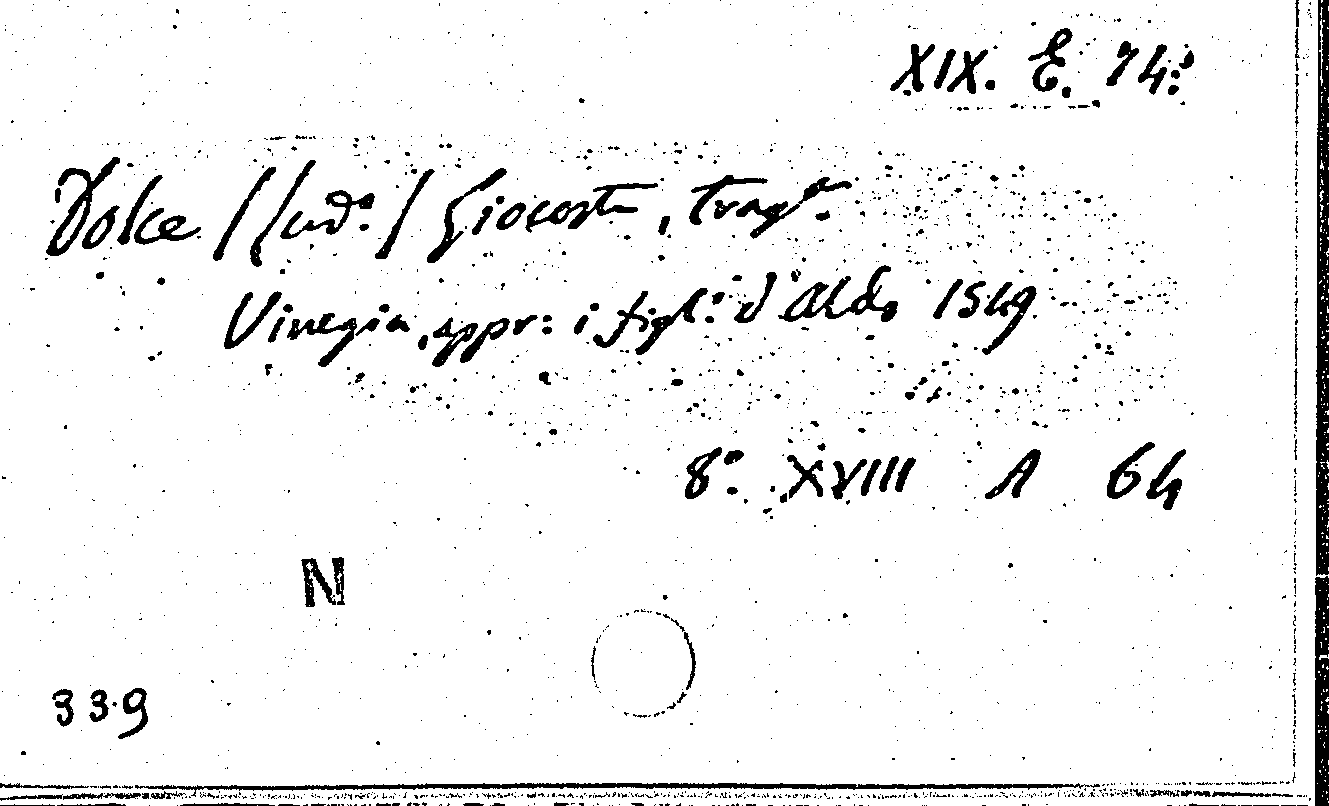 XIX. E. 74.
Dolce / Lud.º / Giocosta, Trag.ª
Vinegia, appr: i figl.i d'Aldo 1549
8º. XVIII A 64
N
339